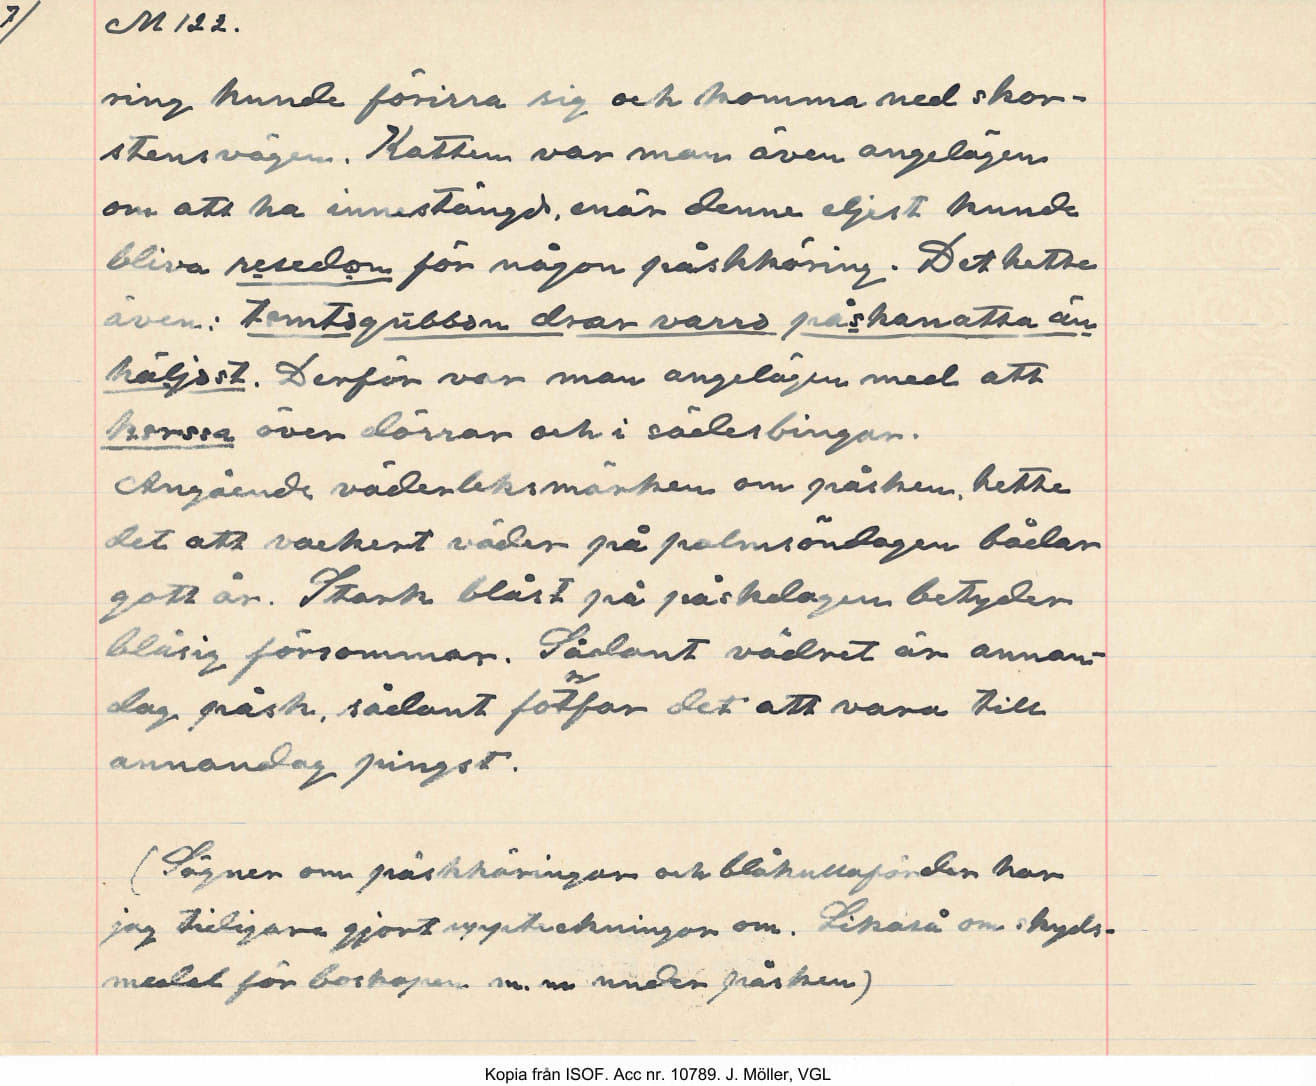 7/
M 122.
ring kunde förirra sig och komma ned skor-
stensvägen. Katten var man även angelägen
om att ha innestängd, enär denne eljest kunde
bliva resedon för någon påskkäring. Det hette
även: tomtsgubbon drar varrs påskanatta än
häljsst. Derför var man angelägen med att
korssa över dörrar och i sädesbingar.
Angående väderleksmärken om påsken, hette
det att vackert väder på palmsöndagen bådar
gott år. Stark blåst på påskdagen betyder
blåsig försommar. Sådant vädret är annan-
dag påsk, sådant fotfar det att vara till
annandag pingst.
(Sägner om påskkäringar och blåkullafärder har
jag tidigare gjort uppteckningar om. Likaså om skyds-
medel för boskapen m. m under påsken)
Kopia från ISOF. Acc nr. 10789. J. Möller, VGL